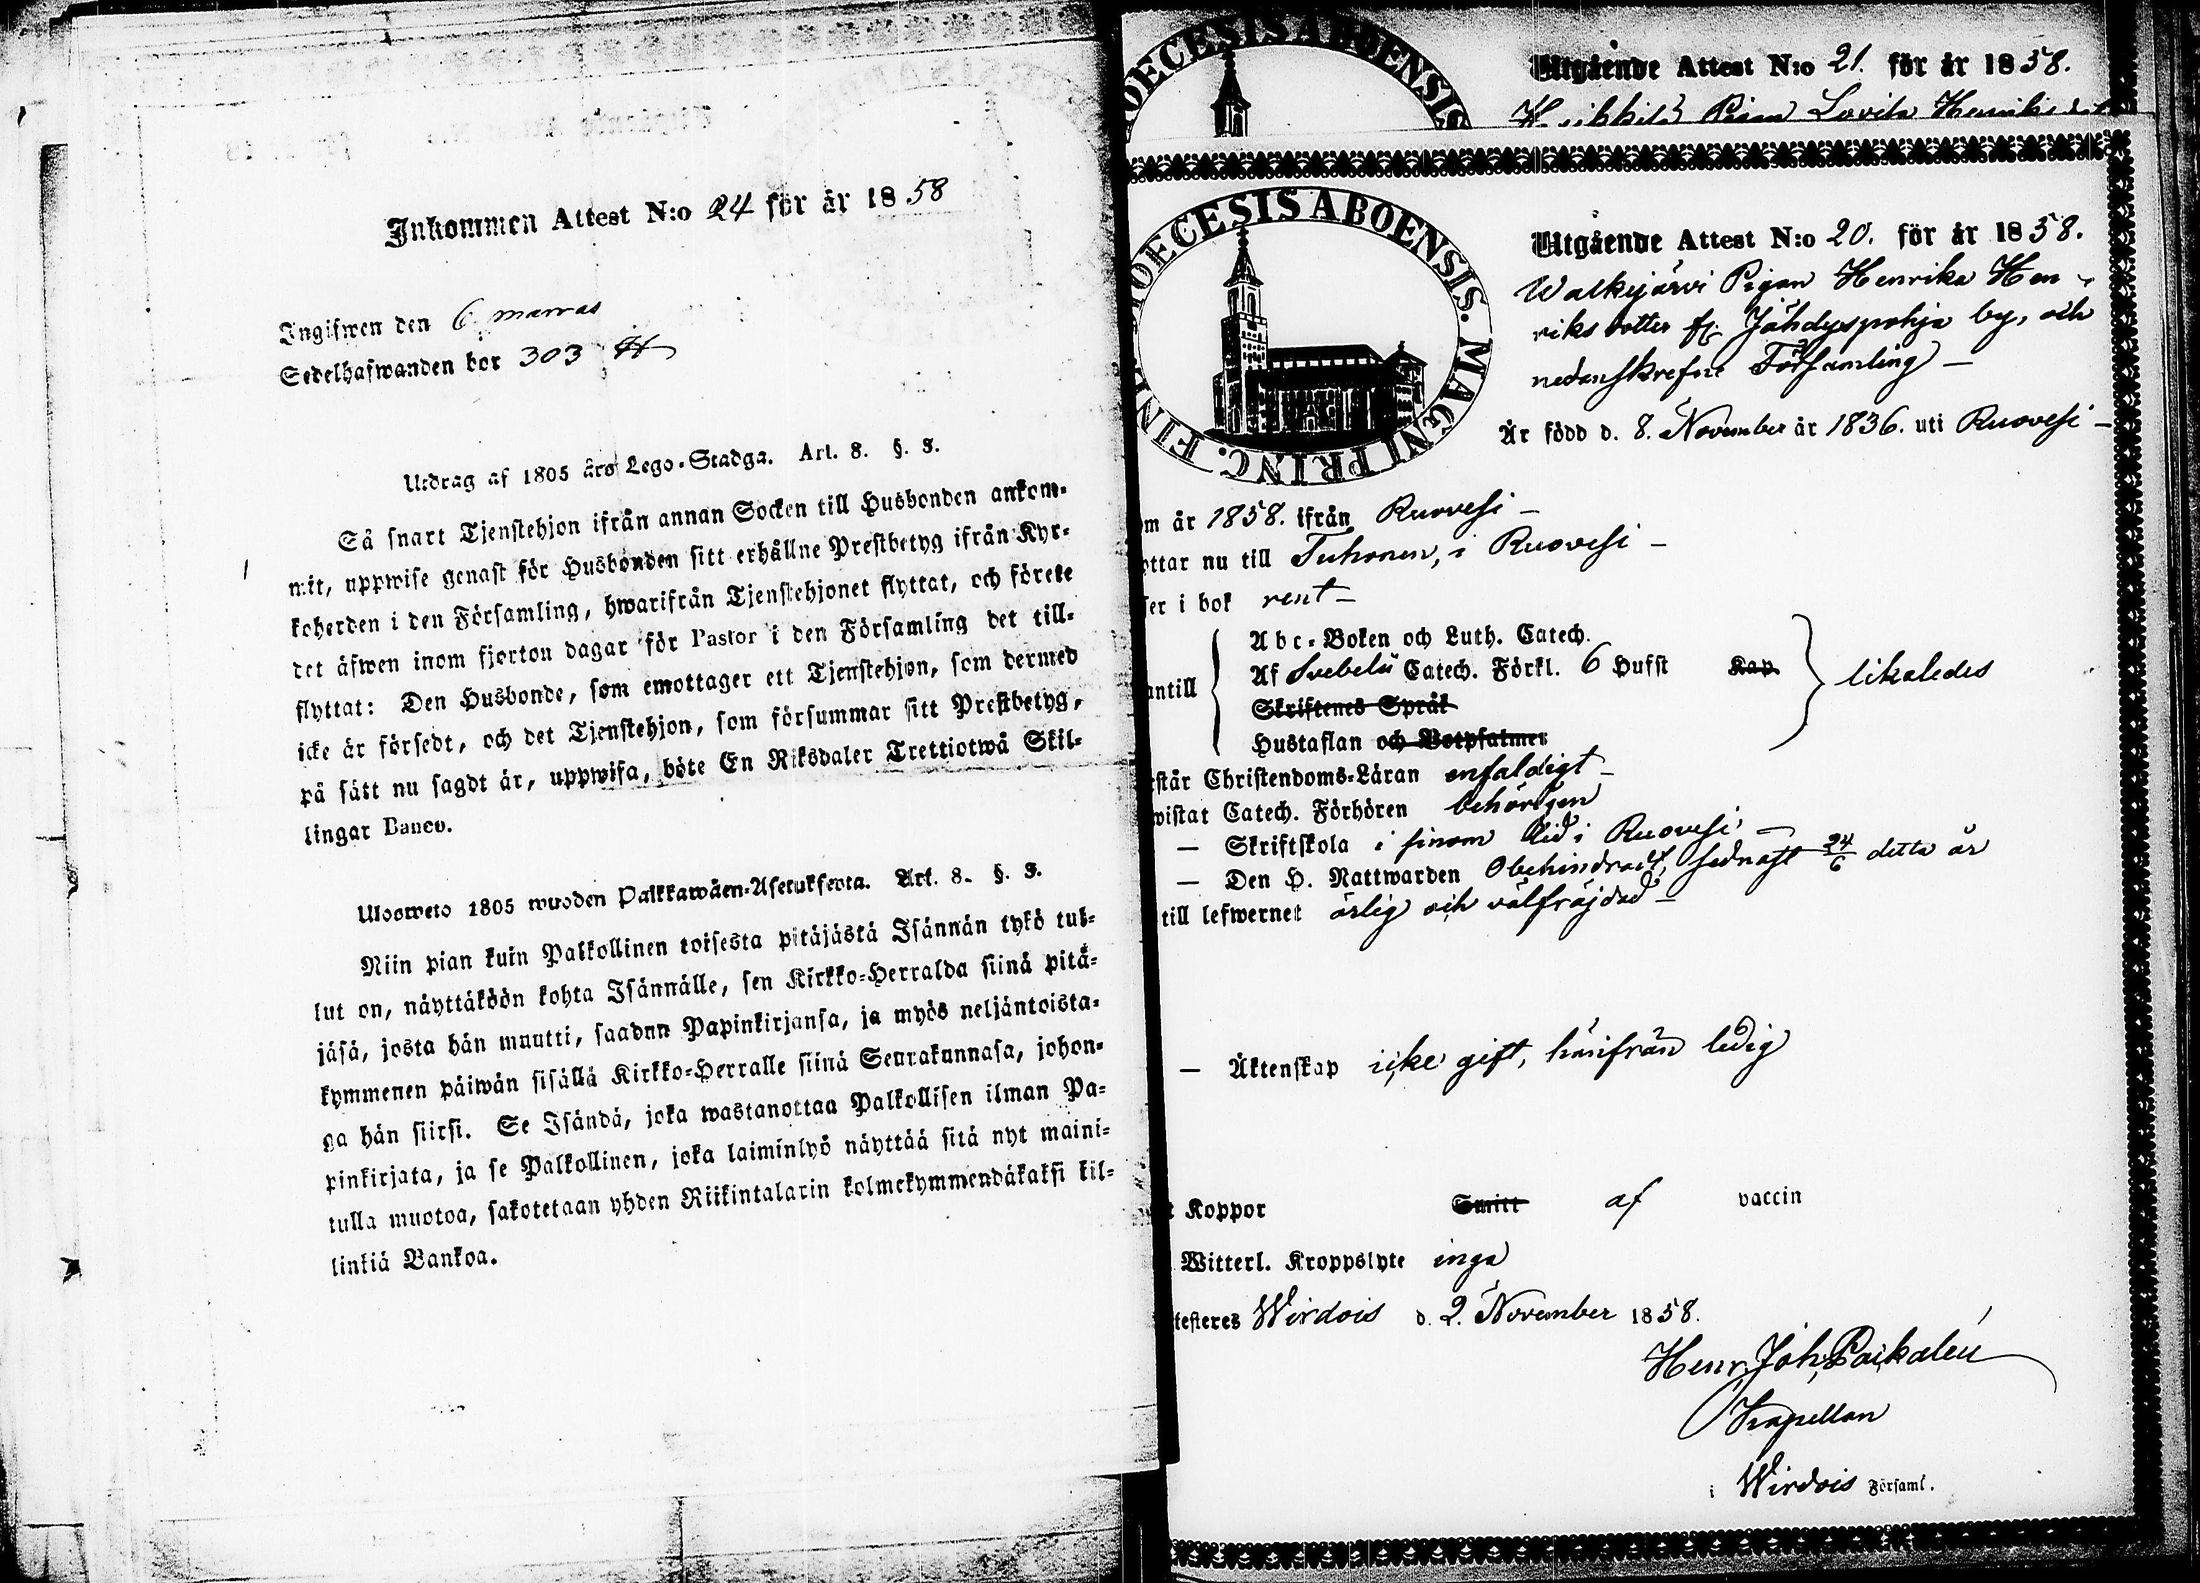 Inkommen Attest N:o 24 för år 1858
Ingifwen den 6 marras
Sedelhafwanden bor 303
Utdrag af 1805 års Lego-Stadga. Art. 8. §. 3.
Så snart Tjenstehjon ifrån annan Socken till Husbonden ankom-
mit, uppwise genast för Husbonden sitt erhållne Prestbetyg ifrån Kyr-
koherden i den Församling, hwarifrån Tjenstehjonet flyttat, och förete
det äfwen inom fjorton dagar för Pastor i den Församling det till-
flyttat: Den Husbonde, som emottager ett Tjenstehjon, som dermed
icke är försedt, och det Tjenstehjon, som försummar sitt Prestbetyg,
på sätt nu sagdt är, uppwisa, böte En Riksdaler Trettiotwå Skil-
lingar Banco.
Ulosweto 1805 wuoden Palkkawäen-Asetuksesta. Art. 8. §. 3.
Niin pian kuin Palkollinen toisesta pitäjästä Isännän tykö tul-
lut on, näyttäköön kohta Isännälle, sen Kirkko-Herralda siinä pitä-
jäsä, josta hän muutti, saadun Papinkirjansa, ja myös neljäntoista-
kymmenen päiwän sisällä Kirkko-Herralle siinä Seurakunnasa, johon-
ga hän siirsi. Se Isändä, joka wastanottaa Palkollisen ilman Pa-
pinkirjata, ja se Palkollinen, joka laiminlyö näyttää sitä nyt maini-
tulla muotoa, sakotetaan yhden Riikintalarin kolmekymmendäkaksi kil-
linkiä Bankoa.
OECESIS ABOENSIS
Utgående Attest N:o 21. för år 1858.
Pigan Lovisa Henriksd
DIOECESIS ABOENSIS. MAGNI PRINC. FIN
Utgående Attest N:o 20. för år 1858.
Walkejärvi Pigan Henrika Hen-
riksdotter fr. Jähdyspohja by, och
nedanskrefne Församling —
Är född d. 8. November år 1836. uti Ruovesi —
om år 1858. ifrån Ruovesi —
yttar nu till Tuhonen, i Ruovesi —
ser i bok rent —
antill
Abc-Boken och Luth. Catech.
Af Svebelii Catech. Förkl. 6 Hufst Kap.
Skriftenes Språk
Hustaflan och Botpsalmer
likaledes
rstår Christendoms-Läran enfaldigt —
wistat Catech. Förhören behörigen
— Skriftskola i sinom tid i Ruovesi —
— Den H. Nattwarden Obehindrad, sednast 24/6 detta år
till lefwernet ärlig och välfräjdad —
— Äktenskap icke gift, härifrån ledig
t Koppor Smitt af vaccin
Witterl. Kroppslyte inga
testeres Wirdois d. 2. November 1858.
Henr. Joh. Paikalén
Kapellan
i Wirdois Församl.